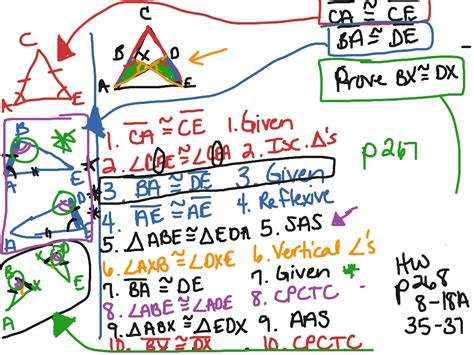 CA ≅ CE
BA ≅ DE
Prove BX ≅ DX
C
A
E
C
B
X
D
A
E
B
A
E
D
A
E
B
X
D
X
A
E
1. CA ≅ CE 1. Given
2. ∠CAE ≅ ∠CEA 2. Isc. Δ's
3. BA ≅ DE 3. Given
4. AE ≅ AE 4. Reflexive
5. ΔABE ≅ ΔEDA 5. SAS
6. ∠AXB ≅ ∠DXE 6. Vertical ∠'s
7. BA ≅ DE 7. Given
8. ∠ABE ≅ ∠ADE 8. CPCTC
9. ΔABX ≅ ΔEDX 9. AAS
10. BX ≅ DX 10. CPCTC
p267
HW
p268
8-18A
35-37